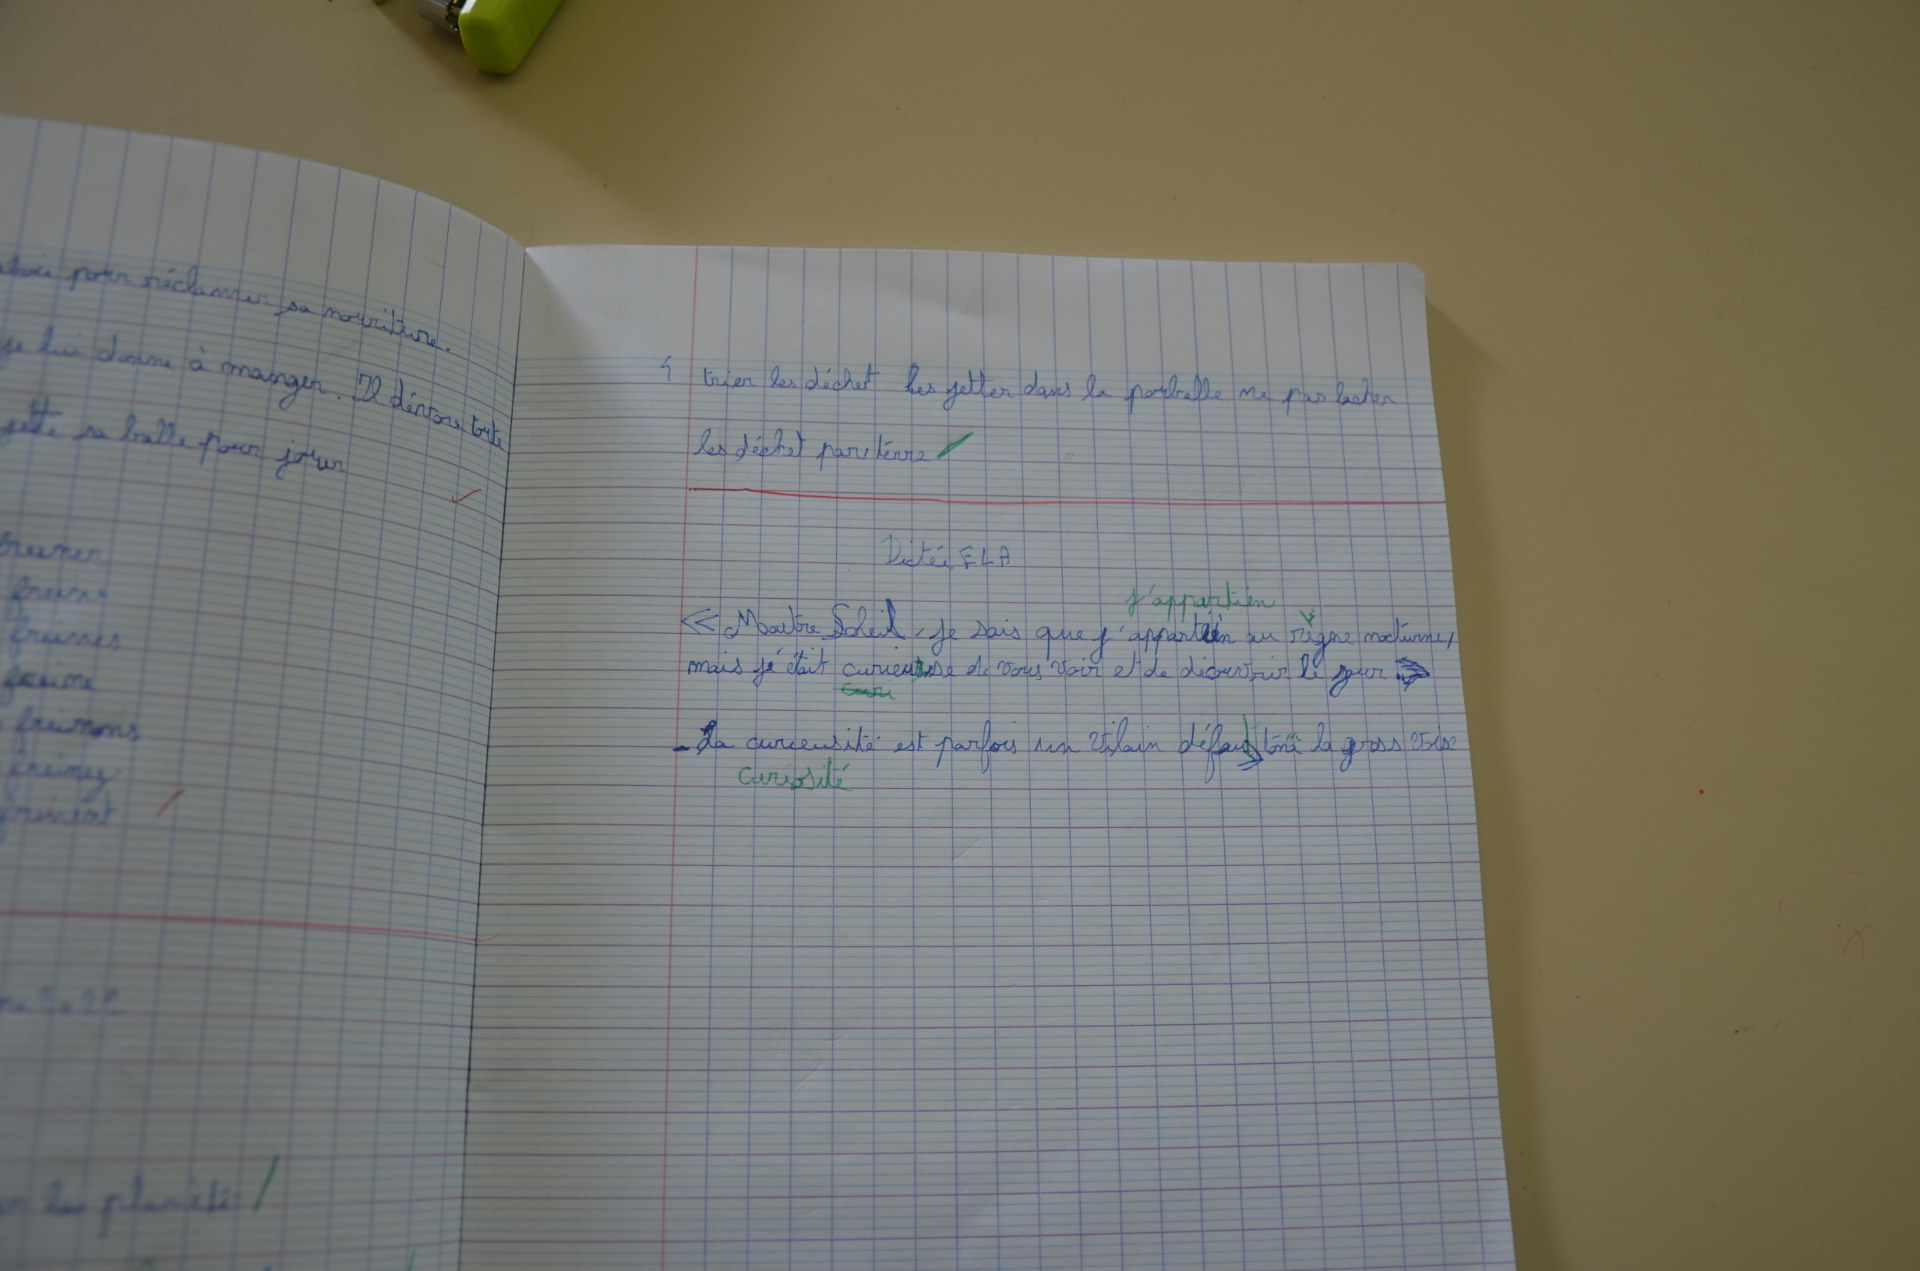 pour réclamer sa nouriture.
je lui donne à manger. Il dévore toute
jette sa balle pour jouer
freiner
freins
freines
freine
freinons
freinez
freinent
la planète
4 trier les déchet les jetter dans la poubelle ne pas lacher
les déchet par térre
Dictée FLA
j'appartien
<< Maître Soleil, je sais que j'appartien au règne nocturne,
mais jé était curieusse de vous voir et de découvrir le jour >>
curi
- La curieusité est parfois un vilain défaut, tona la gross voix
curiosité